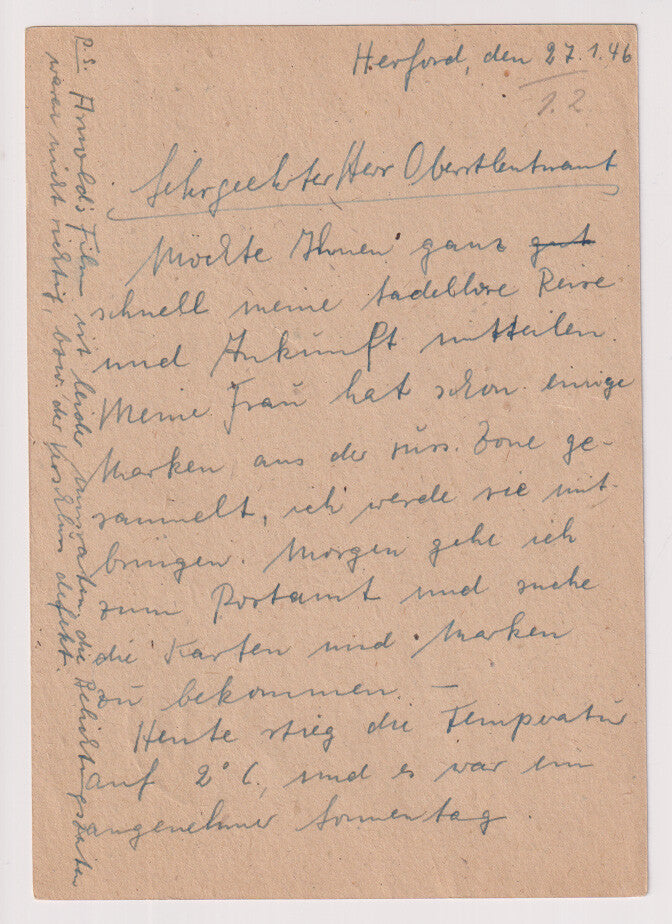 Herford, den 27.1.46
1.2
Sehrgeehrter Herr Oberstleutnant
Möchte Ihnen ganz gut
schnell meine tadellose Reise
und Ankunft mitteilen.
Meine Frau hat schon einige
Marken aus der russ. Zone ge-
sammelt, ich werde sie mit-
bringen. Morgen gehe ich
zum Postamt und suche
die Karten und Marken
zu bekommen. –
Heute stieg die Temperatur
auf 2° C, und es war ein
angenehmer Sonnentag.
P.S. Arnold's Film ist leider missraten, die Belichtungszeiten
waren nicht richtig, bzw. der defekt.